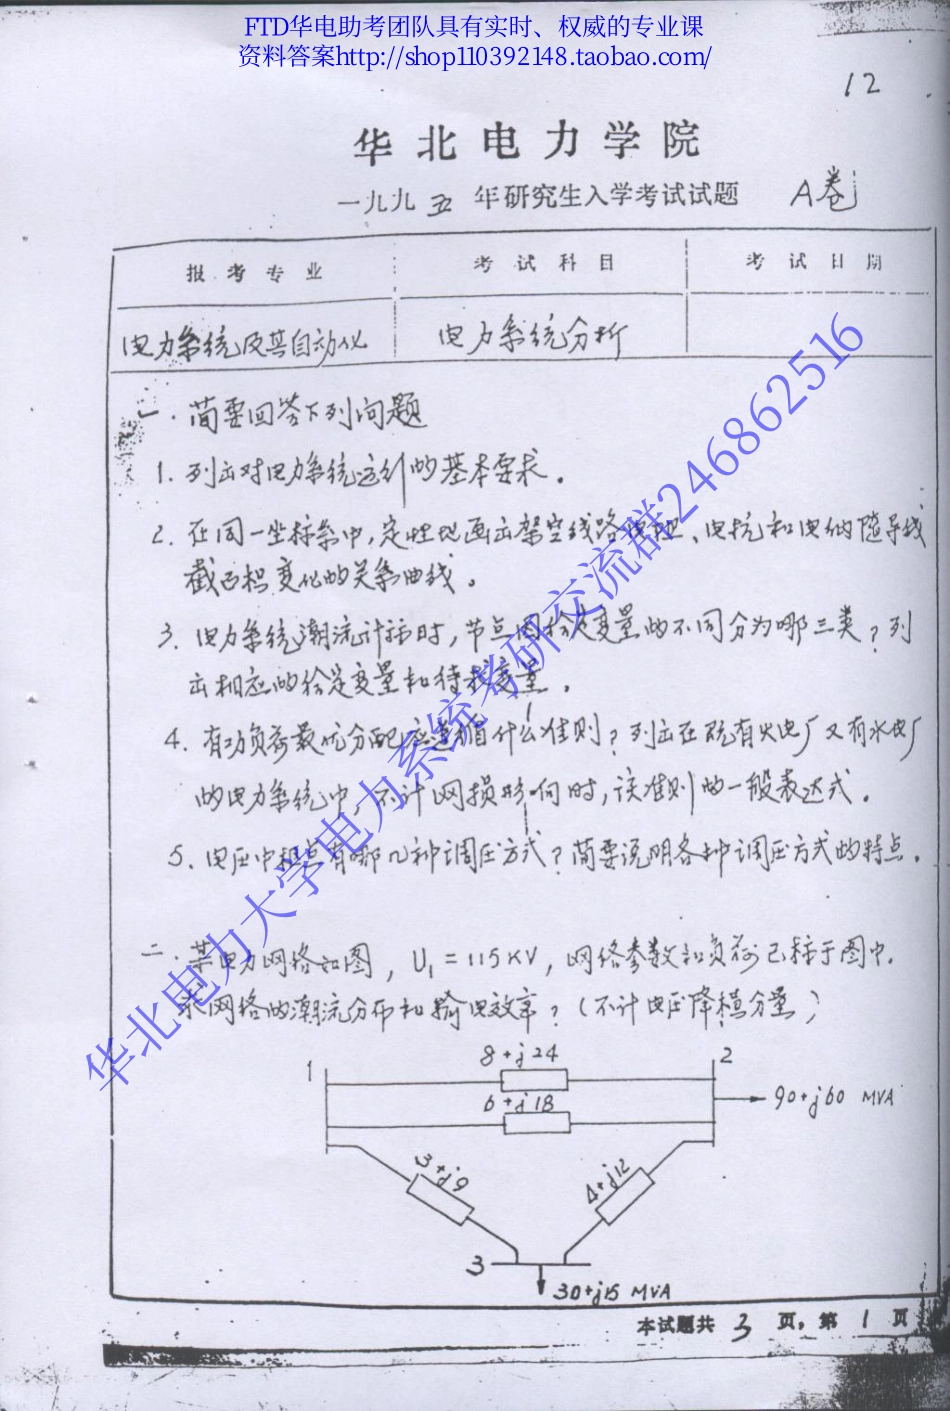 FTD华电助考团队具有实时、权威的专业课
资料答案http://shop110392148.taobao.com/
12
华北电力学院
一九九五年研究生入学考试试题 A卷
报考专业 考试科目 考试日期
电力系统及其自动化 电力系统分析
一.简要回答下列问题
1.列出对电力系统运行的基本要求。
2.在同一坐标系中,定性地画出架空线路电阻、电抗和电纳随导线
截面积变化的关系曲线。
3.电力系统潮流计算时,节点因给定变量的不同分为哪三类?列
出相应的给定变量和待求变量。
4.有功负荷最优分配应遵循什么准则?列出在既有火电厂又有水电厂
的电力系统中,不计网损影响时,该准则的一般表达式。
5、电压中枢点有哪几种调压方式?简要说明各种调压方式的特点。
二.某电力网络如图,U₁=115KV,网络参数和负荷已标于图中.
求网络的潮流分布和输电效率?(不计电压降横分量)
1 8+j24 2
6+j18 90+j60 MVA
3+j9 4+j12
3 30+j15 MVA
本试题共 3 页,第 1 页
华北电力大学电力系统考研交流群246862516